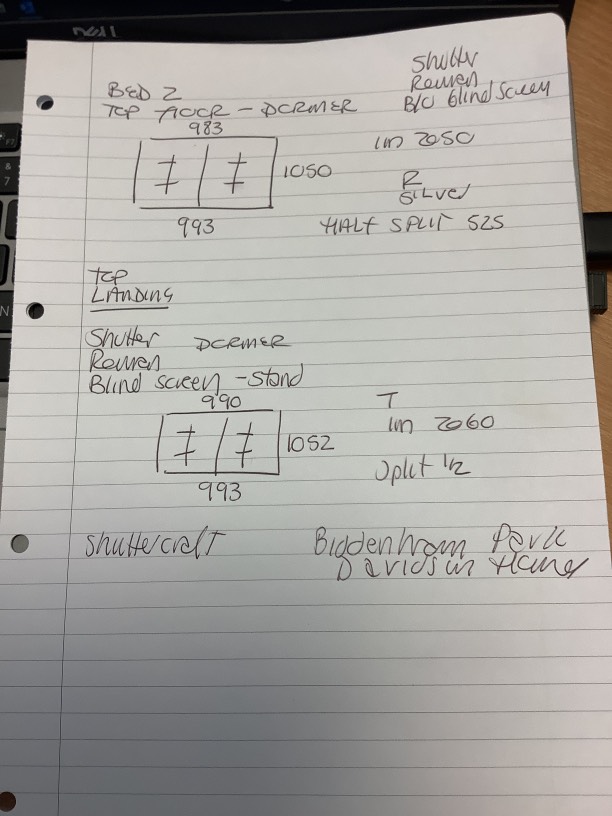 DELL
BED 2
TOP FLOOR - DORMER
Shutter
Rowen
B/O blind screen
983
1050
993
lm 2050
R
SILVER
HALF SPLIT 525
TOP
LANDING
Shutter DORMER
Rowen
Blind screen - stand
990
1052
993
T
lm 2060
Split 1/2
Shuttercraft
Biddenham Park
Davidson Homes